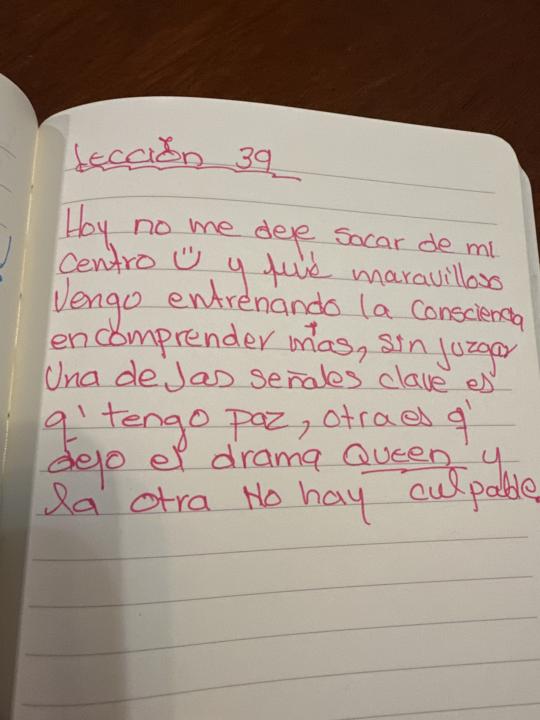 Lección 39
Hoy no me deje sacar de mi
centro ☺ y fué maravilloso
Vengo entrenando la consciencia
en comprender más, sin juzgar
Una de las señales clave es
q' tengo paz, otra es q'
dejo el drama Queen y
la otra No hay culpable